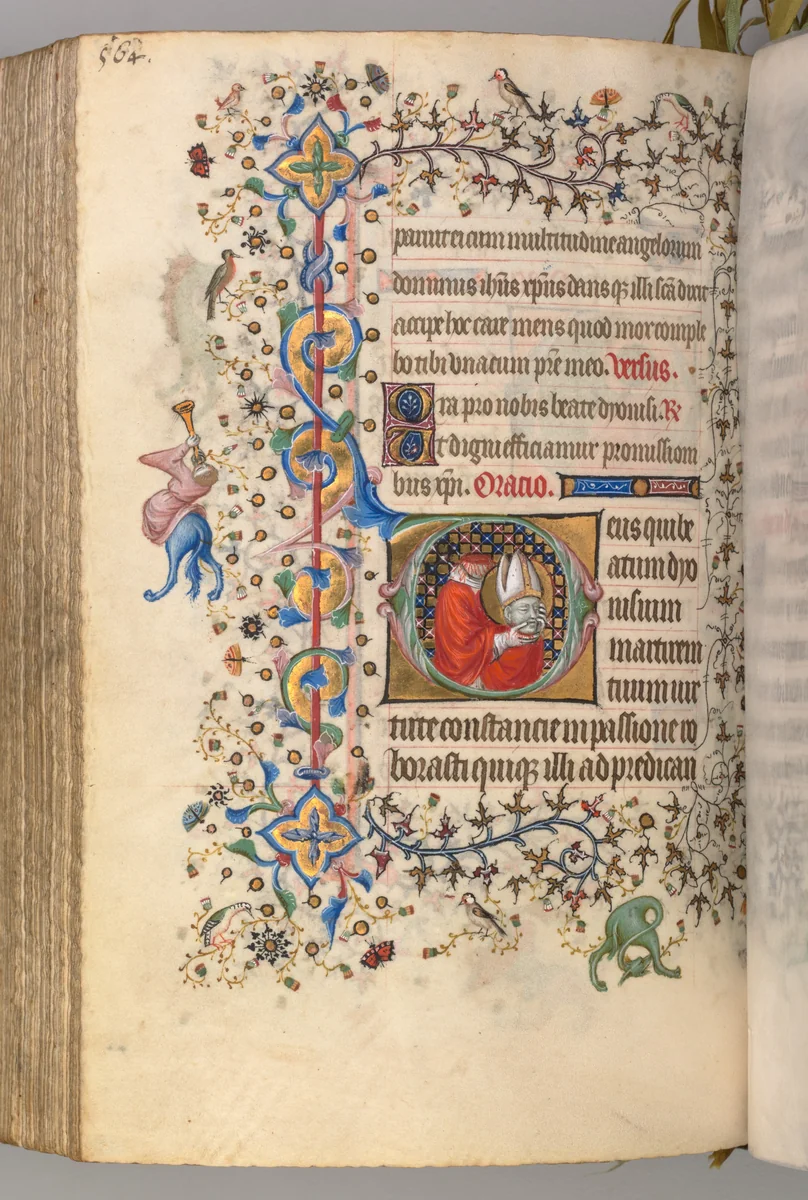 564.
paruit ei cum multitudine angelorum
dominus ihūs xp̄us dansq; illi scā dixit
accipe hoc care meus quod mox comple
bo tibi vna cum prē meo. Versus.
Ora pro nobis beate dyonisi. R
At digni efficiamur promission
bus xp̄i. Oracio.
Deus qui be
atum dyo
nisium
martirem
tuum uir
tute constancie in passione ro
borasti quiq; illi ad predican